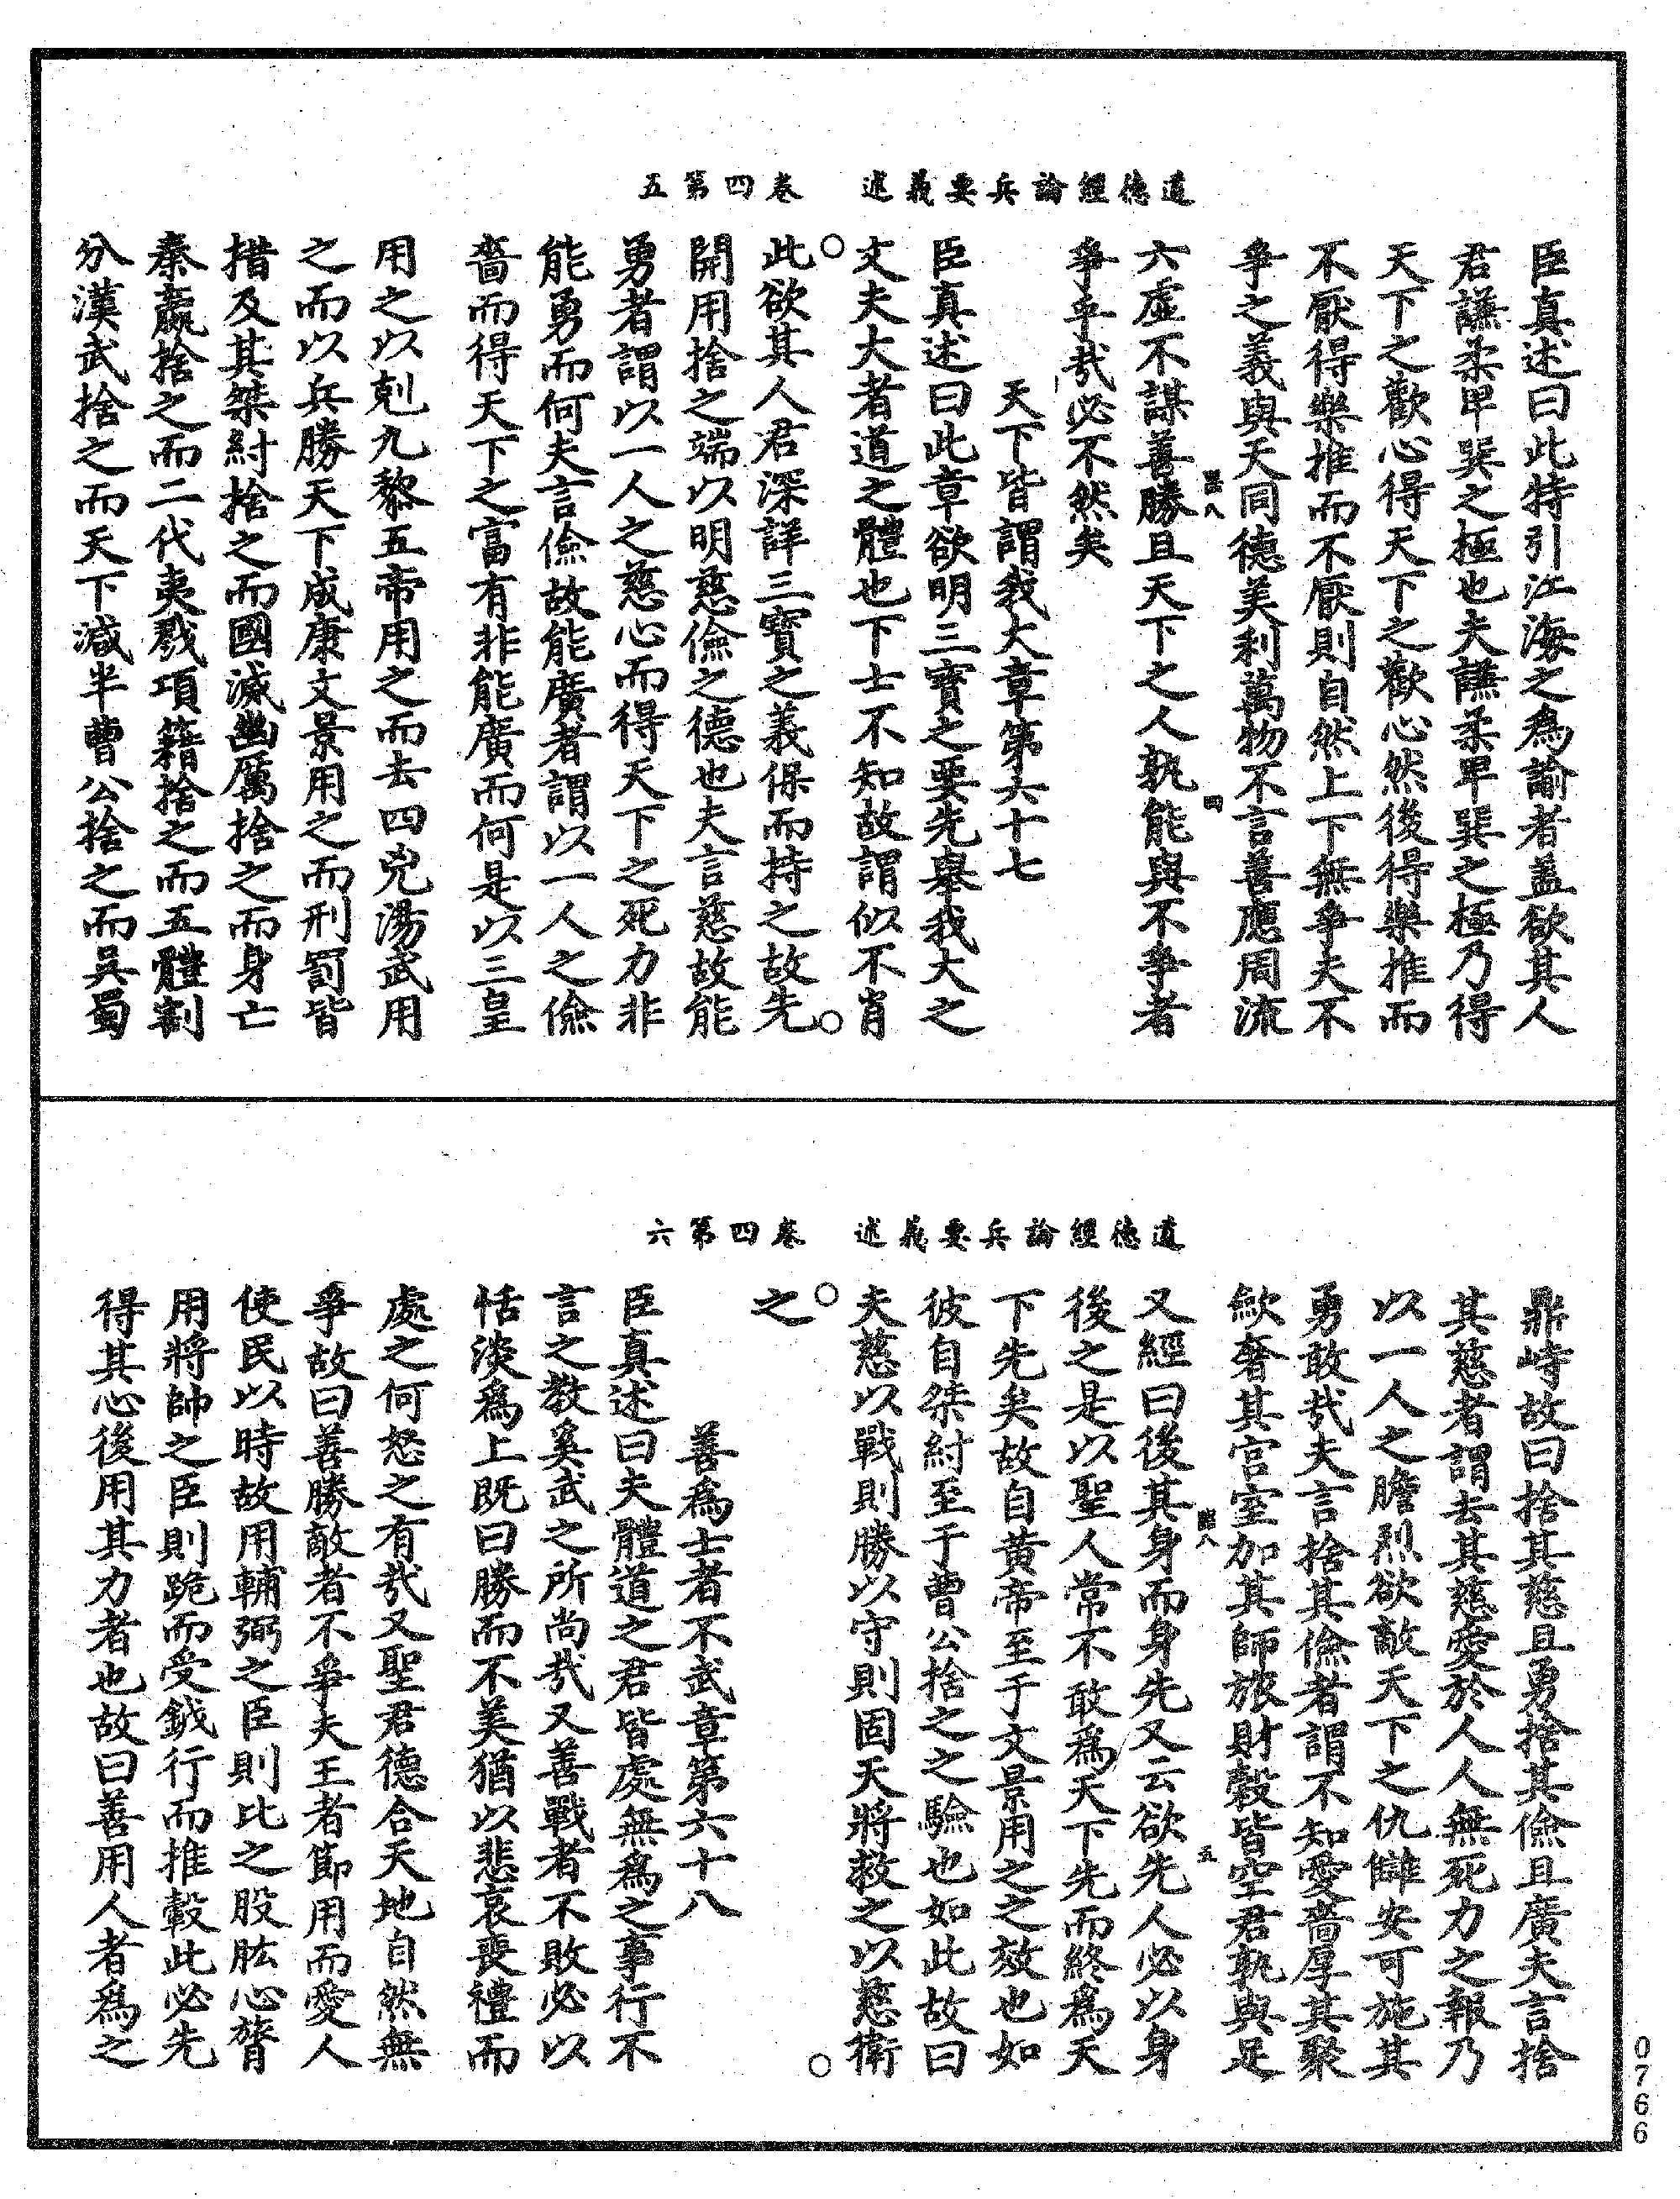 道德經論兵要義述　卷四第五
臣真述曰此特引江海之為諭者蓋欲其人
君謙柔卑巽之極也夫謙柔卑巽之極乃得
天下之歡心得天下之歡心然後得樂推而
不厭得樂推而不厭則自然上下無爭夫不
爭之義與天同德美利萬物不言善應周流
八　四
六虛不謀善勝且天下之人孰能與不爭者
爭乎哉必不然矣
天下皆謂我大章第六十七
臣真述曰此章欲明三寶之要先舉我大之
文夫大者道之體也下士不知故謂似不肖
此欲其人君深詳三寶之義保而持之故先
開用捨之端以明慈儉之德也夫言慈故能
勇者謂以一人之慈心而得天下之死力非
能勇而何夫言儉故能廣者謂以一人之儉
嗇而得天下之富有非能廣而何是以三皇
用之以剋九黎五帝用之而去四兇湯武用
之而以兵勝天下成康文景用之而刑罰皆
措及其桀紂捨之而國滅幽厲捨之而身亡
秦嬴捨之而二代夷戮項籍捨之而五體割
分漢武捨之而天下減半曹公捨之而吳蜀
道德經論兵要義述　卷四第六
鼎峙故曰捨其慈且勇捨其儉且廣夫言捨
其慈者謂去其慈愛於人人無死力之報乃
以一人之膽烈欲敵天下之仇讎安可施其
勇敢哉夫言捨其儉者謂不知愛嗇厚其聚
斂奢其宮室加其師旅財穀皆空君孰與足
八　五
又經曰後其身而身先又云欲先人必以身
後之是以聖人常不敢為天下先而終為天
下先矣故自黃帝至于文景用之之效也如
彼自桀紂至于曹公捨之之驗也如此故曰
夫慈以戰則勝以守則固天將救之以慈衛
之
善為士者不武章第六十八
臣真述曰夫體道之君皆處無為之事行不
言之教奚武之所尚哉又善戰者不敗必以
恬淡為上既曰勝而不美猶以悲哀喪禮而
處之何怒之有哉又聖君德合天地自然無
爭故曰善勝敵者不爭夫王者節用而愛人
使民以時故用輔弼之臣則比之股肱心膂
用將帥之臣則跪而受鉞行而推轂此必先
得其心後用其力者也故曰善用人者為之
0766